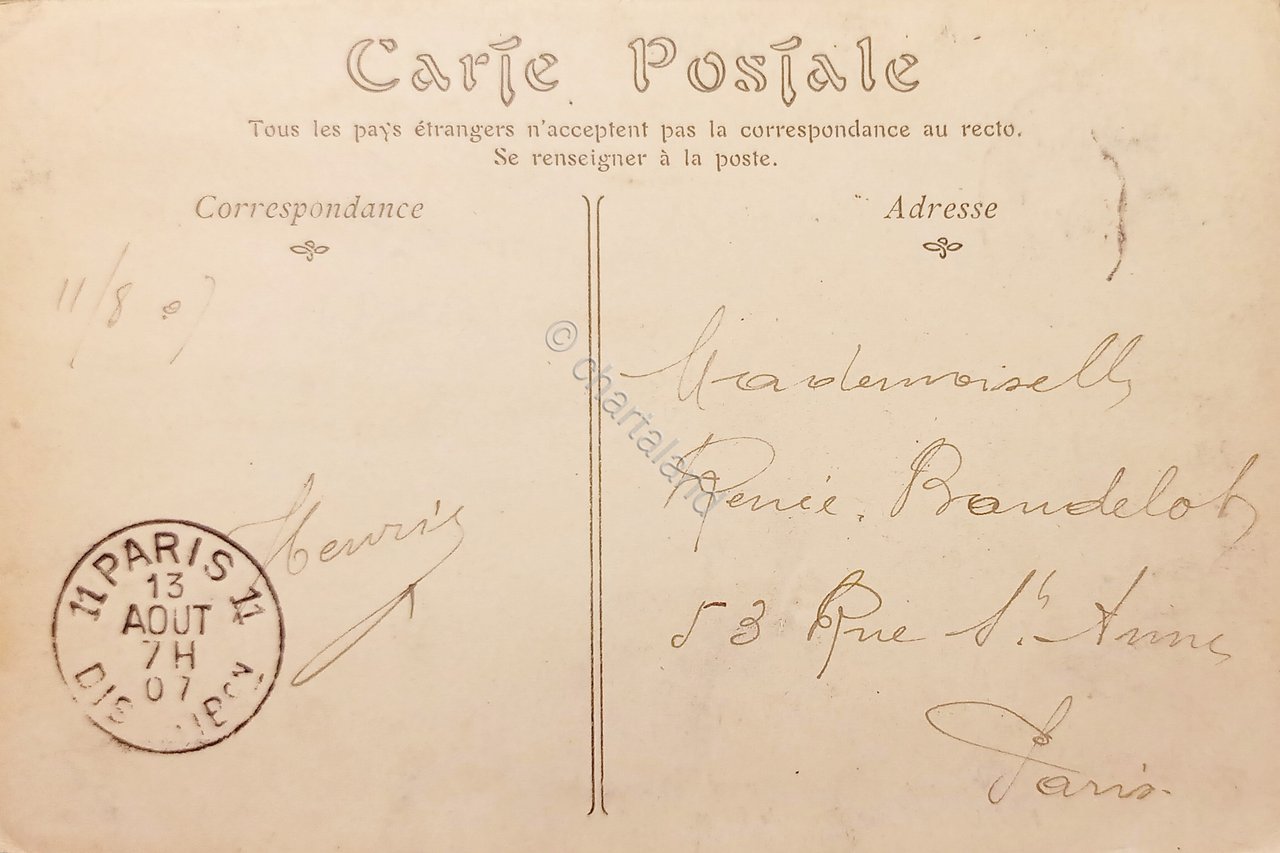 Carte Postale
Tous les pays étrangers n'acceptent pas la correspondance au recto.
Se renseigner à la poste.
Correspondance
11/8 07
Henri
11 PARIS 11
13
AOUT
7H
07
Adresse
Mademoiselle
Renée Baudelot
53 Rue St. Anne
Paris
© chartaland